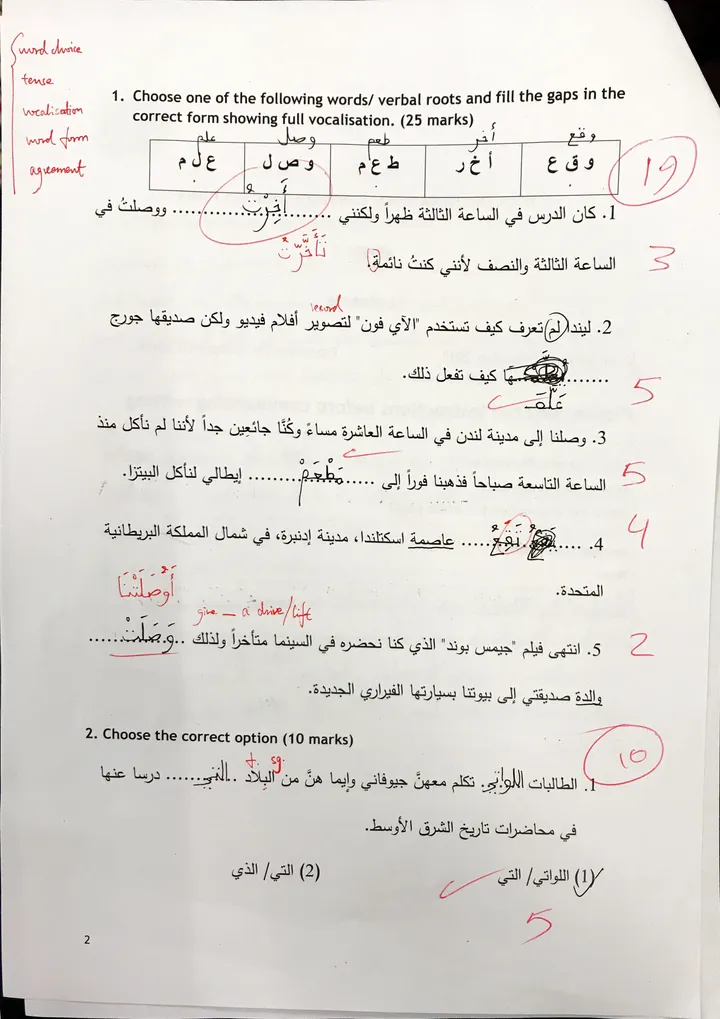 word choice
tense
vocalisation
word form
agreement
1. Choose one of the following words/ verbal roots and fill the gaps in the
correct form showing full vocalisation. (25 marks)
وقع أخر طعم وصل علم
و ق ع أ خ ر ط ع م و ص ل ع ل م
19
1. كان الدرس في الساعة الثالثة ظهراً ولكنني ........أَخِرْتُ........ ووصلتُ في
تَأَخَّرْتُ
الساعة الثالثة والنصف لأنني كنتُ نائمة.
3
record
2. ليندا لم تعرف كيف تستخدم "الآي فون" لتصوير أفلام فيديو ولكن صديقها جورج
........ها كيف تفعل ذلك.
عَلَّمَ
5
3. وصلنا إلى مدينة لندن في الساعة العاشرة مساءً وكُنَّا جائعين جداً لأننا لم نأكل منذ
الساعة التاسعة صباحاً فذهبنا فوراً إلى ......مَطْعَمٍ......... إيطالي لنأكل البيتزا.
5
4. ......تَقَعُ...... عاصمة اسكتلندا، مدينة إدنبرة، في شمال المملكة البريطانية
4
المتحدة.
أَوْصَلَتْنَا
give _ a drive/lift
5. انتهى فيلم "جيمس بوند" الذي كنا نحضره في السينما متأخراً ولذلك ..وَصَلَتْ......
2
والدة صديقتي إلى بيوتنا بسيارتها الفيراري الجديدة.
2. Choose the correct option (10 marks)
10
f. sg.
1. الطالبات اللواتي. تكلم معهنَّ جيوفاني وإيما هنَّ من البِلاد ..التي....... درسا عنها
في محاضرات تاريخ الشرق الأوسط.
(1) اللواتي/ التي (2) التي/ الذي
5
2